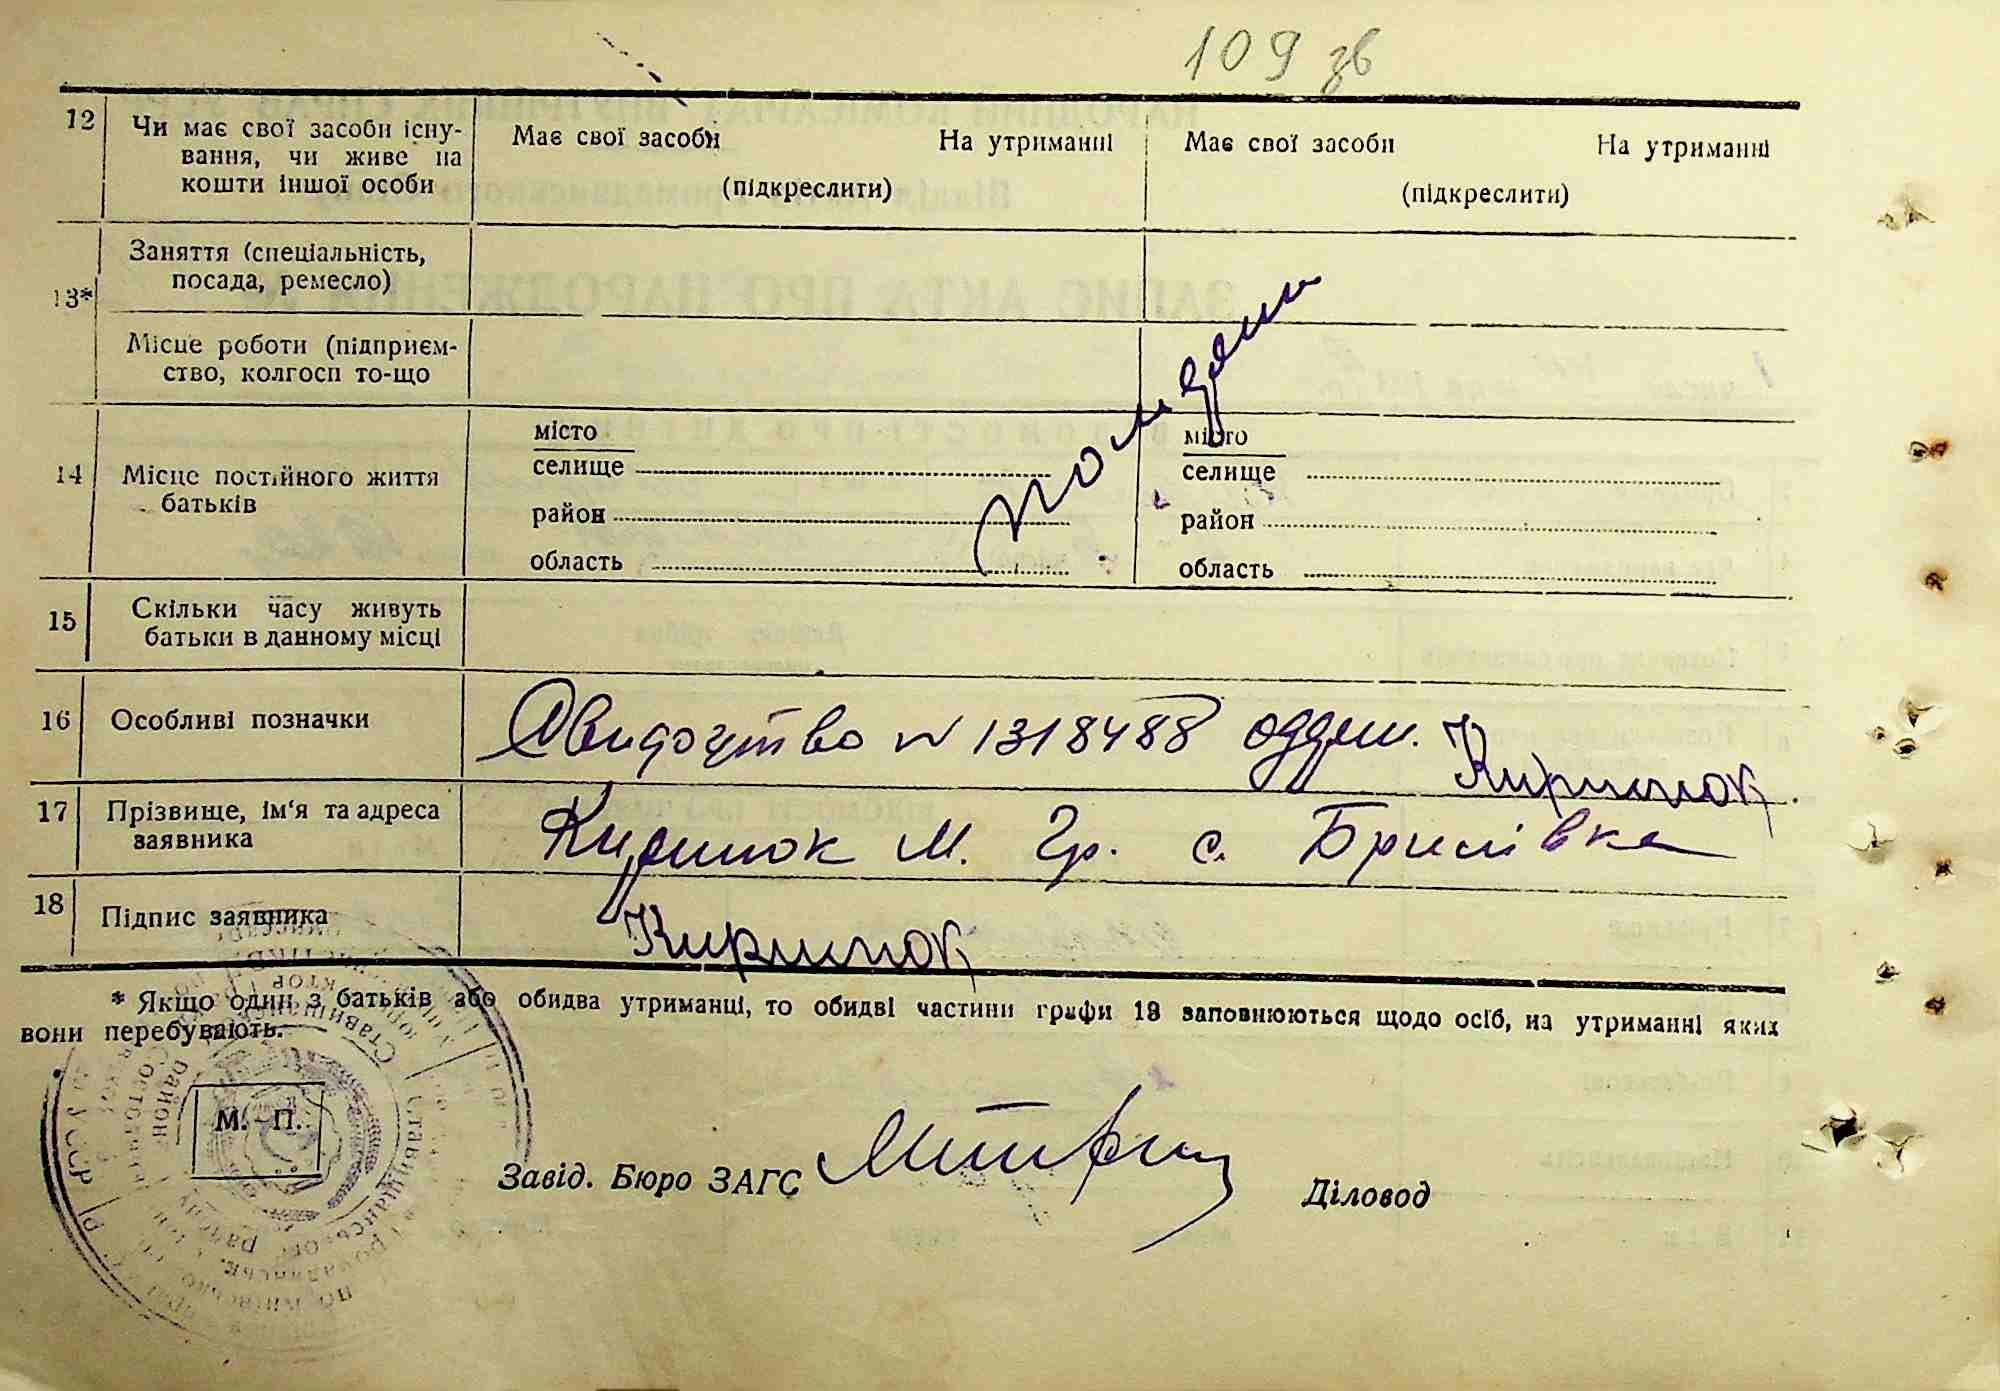 109 зв
12 Чи має свої засоби існу-
вання, чи живе на
кошти іншої особи
Має свої засоби На утриманні
(підкреслити)
Має свої засоби На утриманні
(підкреслити)
13* Заняття (спеціальність,
посада, ремесло)
Місце роботи (підприєм-
ство, колгосп то-що
14 Місце постійного життя
батьків
місто
селище
район
область
місто
селище
район
область
померли
15 Скільки часу живуть
батьки в данному місці
16 Особливі позначки
Свидоцтво N 1318488 оддеш.
Киринюк
17 Прізвище, ім'я та адреса
заявника
Киринюк М. Гр. с. Брилівка
18 Підпис заявника
Киринюк
* Якщо один з батьків або обидва утриманці, то обидві частини графи 13 заповнюються щодо осіб, на утриманні яких
вони перебувають.
М. П.
Завід. Бюро ЗАГС
Діловод